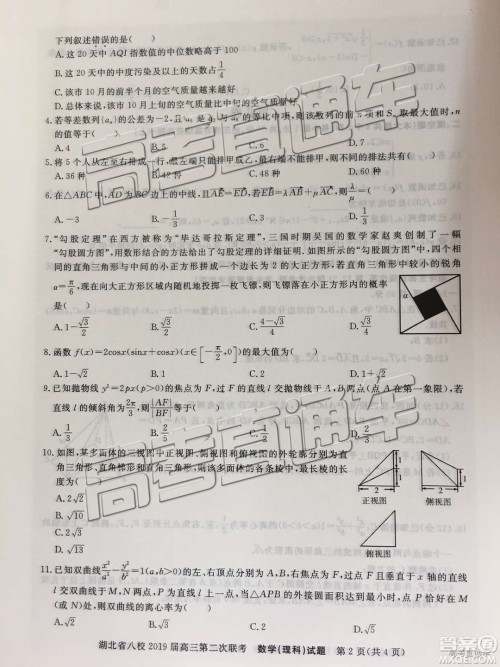 下列叙述错误的是( )
A. 这 20 天中 AQI 指数值的中位数略高于 100
B. 这 20 天中的中度污染及以上的天数占1/4
C. 该市 10 月的前半个月的空气质量越来越好
4. 若等差数列{aₙ}的公差为-2, 的等比中项,则该数列的前 项和 Sₙ 取最大值时, n
的值等于( )
A. 4 B. 5 C. 6 D. 7
5. 将 5 个人从左至右排成一行,最左端只能排甲或乙,最右端不能排甲,则不同的排法共有( )
A. 36 种 B. 42 种 C. 48 种 D. 60 种
6. 在△ABC 中, AD 为 BC 边上的中线,且
A. -3 B. -1/3 C. 3 D. 1/3
7. “勾股定理”在西方被称为“毕达哥拉斯定理”,三国时期吴国的数学家赵爽创制了一幅
“勾股圆方图”,用数形结合的方法给出了勾股定理的详细证明.如图所示的“勾股圆方图”中,四个相
同的直角三角形与中间的小正方形拼成一个边长为 2 的大正方形,若直角三角形中较小的锐角
α=π/6,现在向大正方形区域内随机地投掷一枚飞镖,则飞镖落在小正方形内的概率
是( )
A. 1-√3/2 B. √3/2 C. (4-√3)/4 D. √3/4
α
8. 函数 f(x)=2cosx(sinx+cosx)(x∈[-π/2,0])的最大值为( )
A. 1-√2 B. 1 C. √2 D. 1+√2
9. 已知抛物线 y²=2px(p>0)的焦点为 F,过 F 的直线 l 交抛物线于 A、B 两点(点 A 在第一象限),若
直线 l 的倾斜角为2π/3,则|AF|/|BF|等于( )
A. 1/3 B. C. D.
10. 如图,某多面体的三视图中正视图、侧视图和俯视图的外轮廓分别为直
角三角形、直角梯形和直角三角形,则该多面体的各条棱中,最长棱的长
度为( )
A. 2√2
B. √10
C. 3√2
D. √13
正视图 侧视图
俯视图
11. 已知双曲线x²/a²-y²/b²=1(a,b>0)的左、右顶点分别为 A、B,右焦点为 F,过点 F 且垂直于 x 轴的直线
l 交双曲线于 M、N 两点, P 为直线 l 上的一点,当∠APB 的外接圆面积达到最小值时,点 M(或
N)恰好在 P 处,则双曲线的离心率为( )
A. √2 B. √3 C. 2 D. √5
湖北省八校 2019 届高三第二次联考 数学(理科)试题 第 2 页(共 4 页)
高考直通车
高考直通车